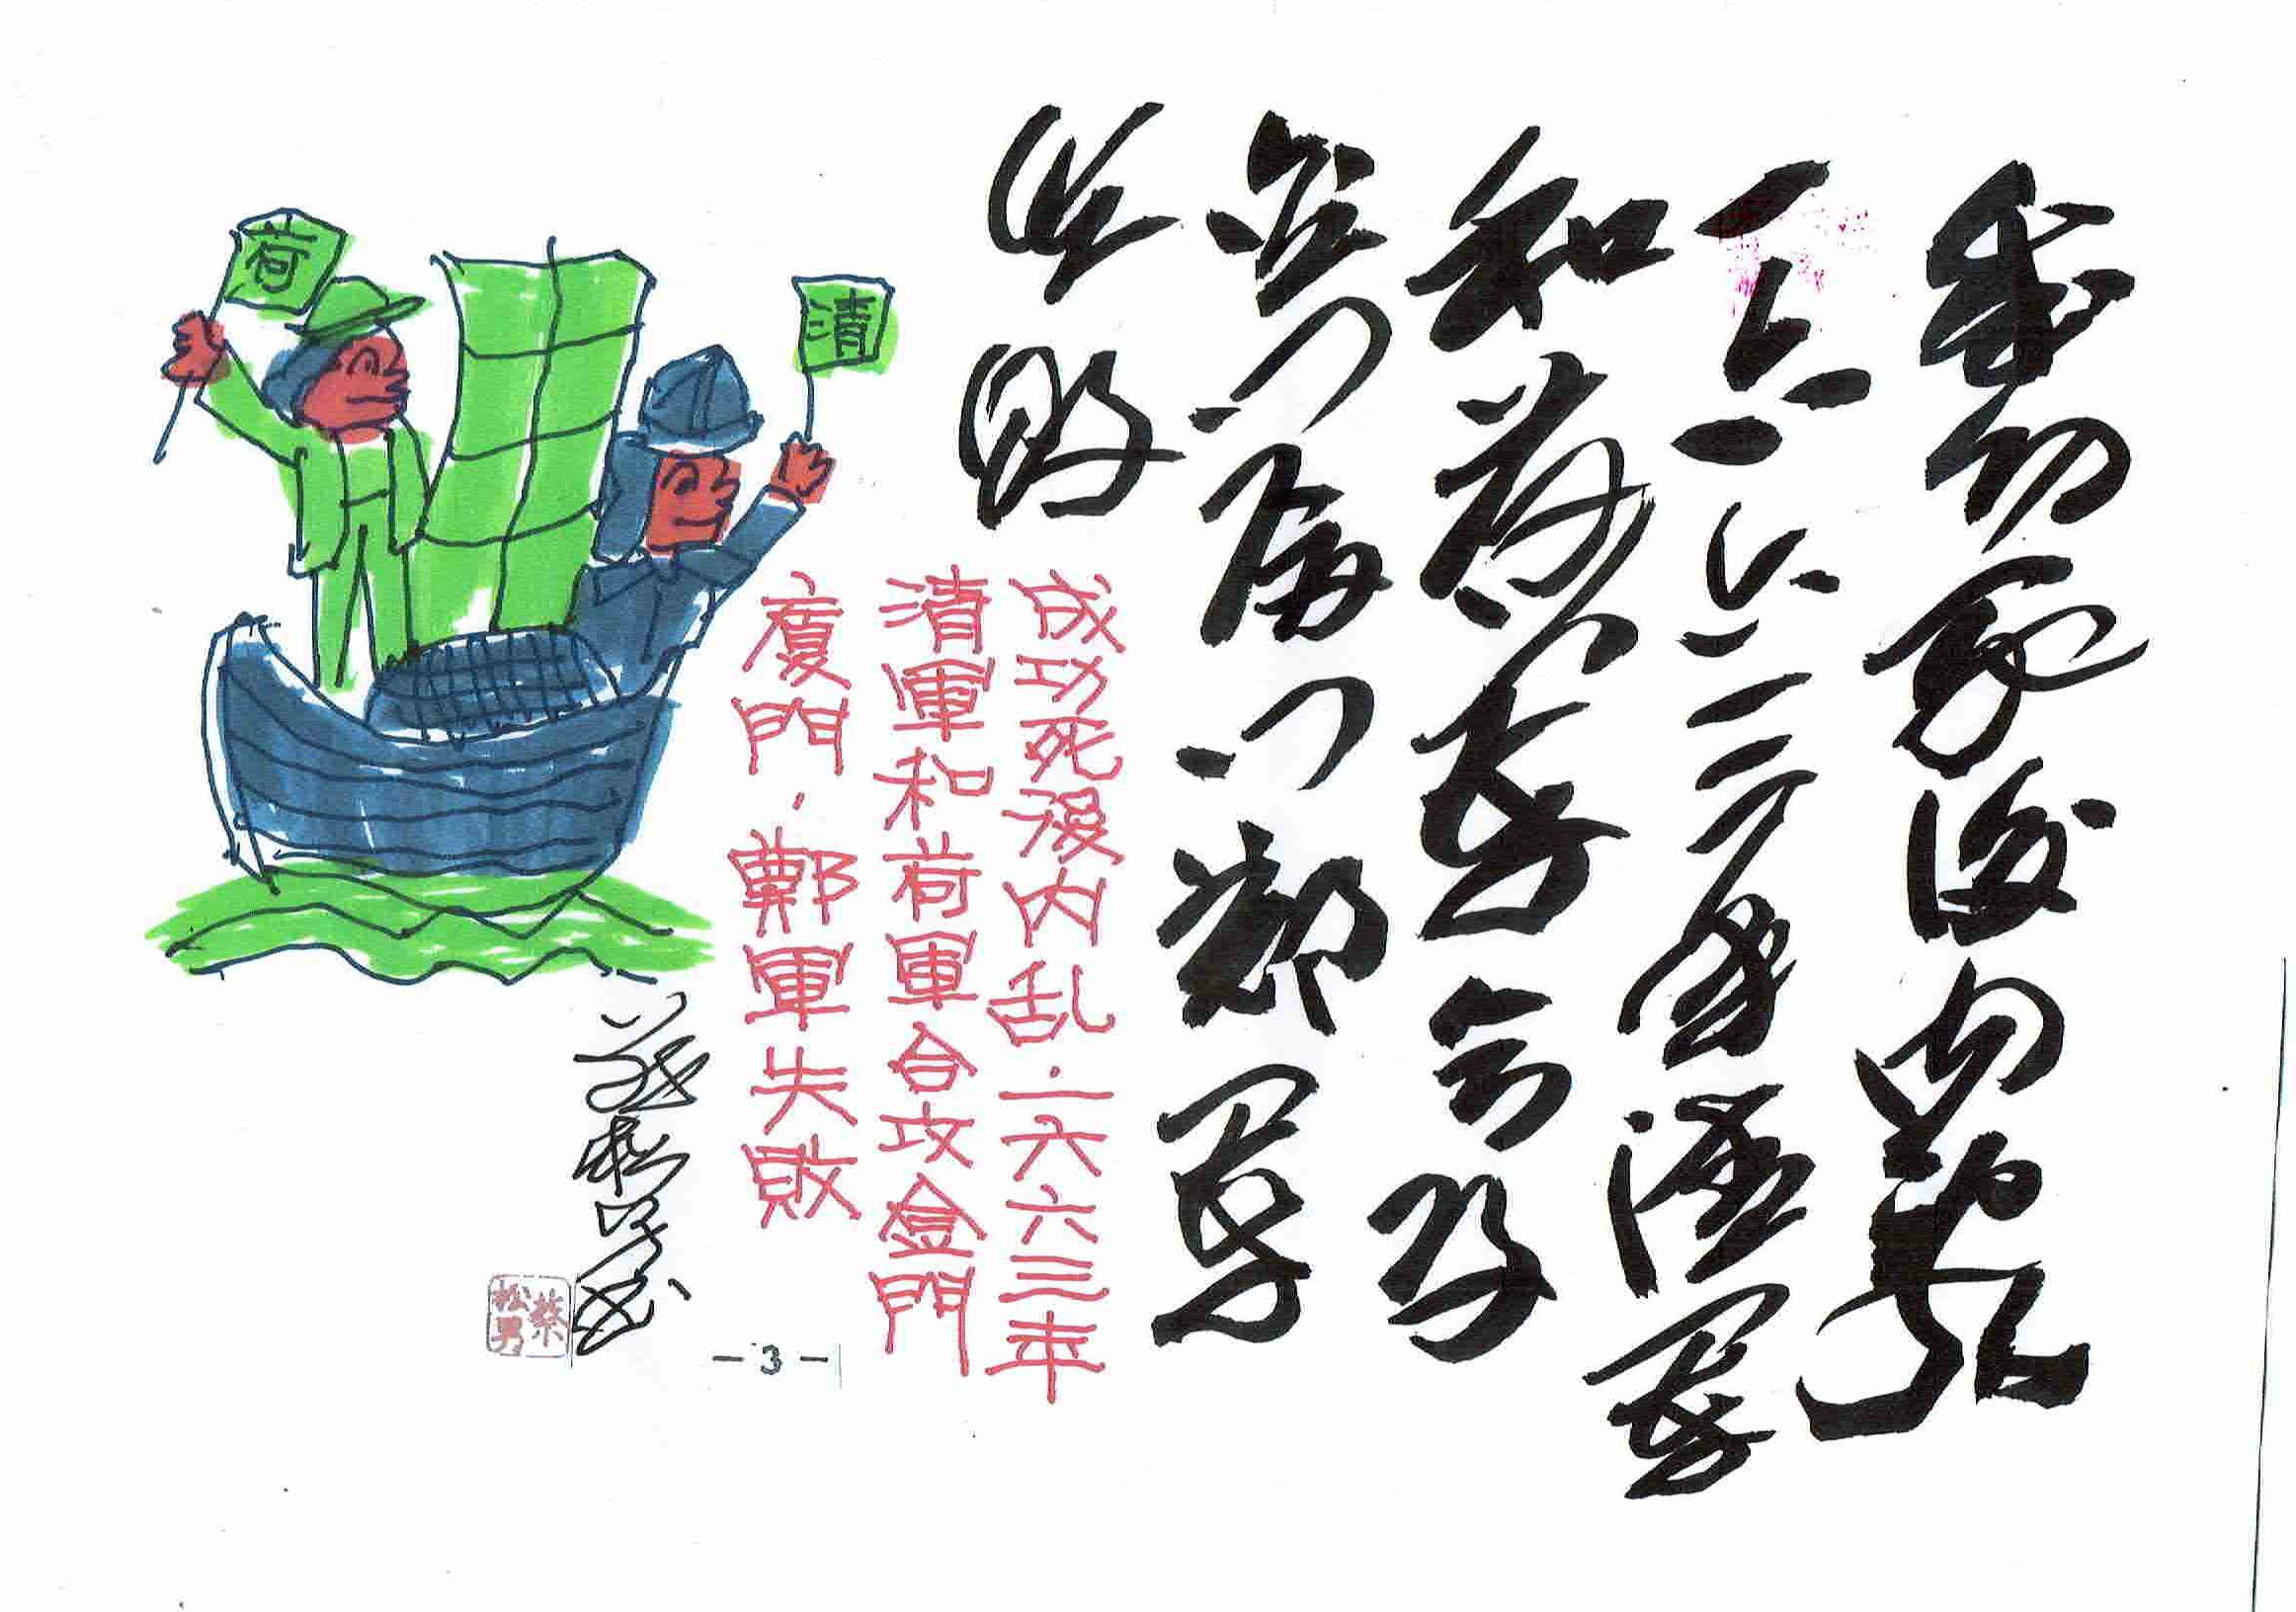 成功死後內亂
一六六三年清軍
和荷軍合攻
金門廈門鄭軍
失敗
成功死後内乱．一六六三年
清軍和荷軍合攻金門
廈門．鄭軍失敗
清
荷
蔡松男書
蔡松男
-3-